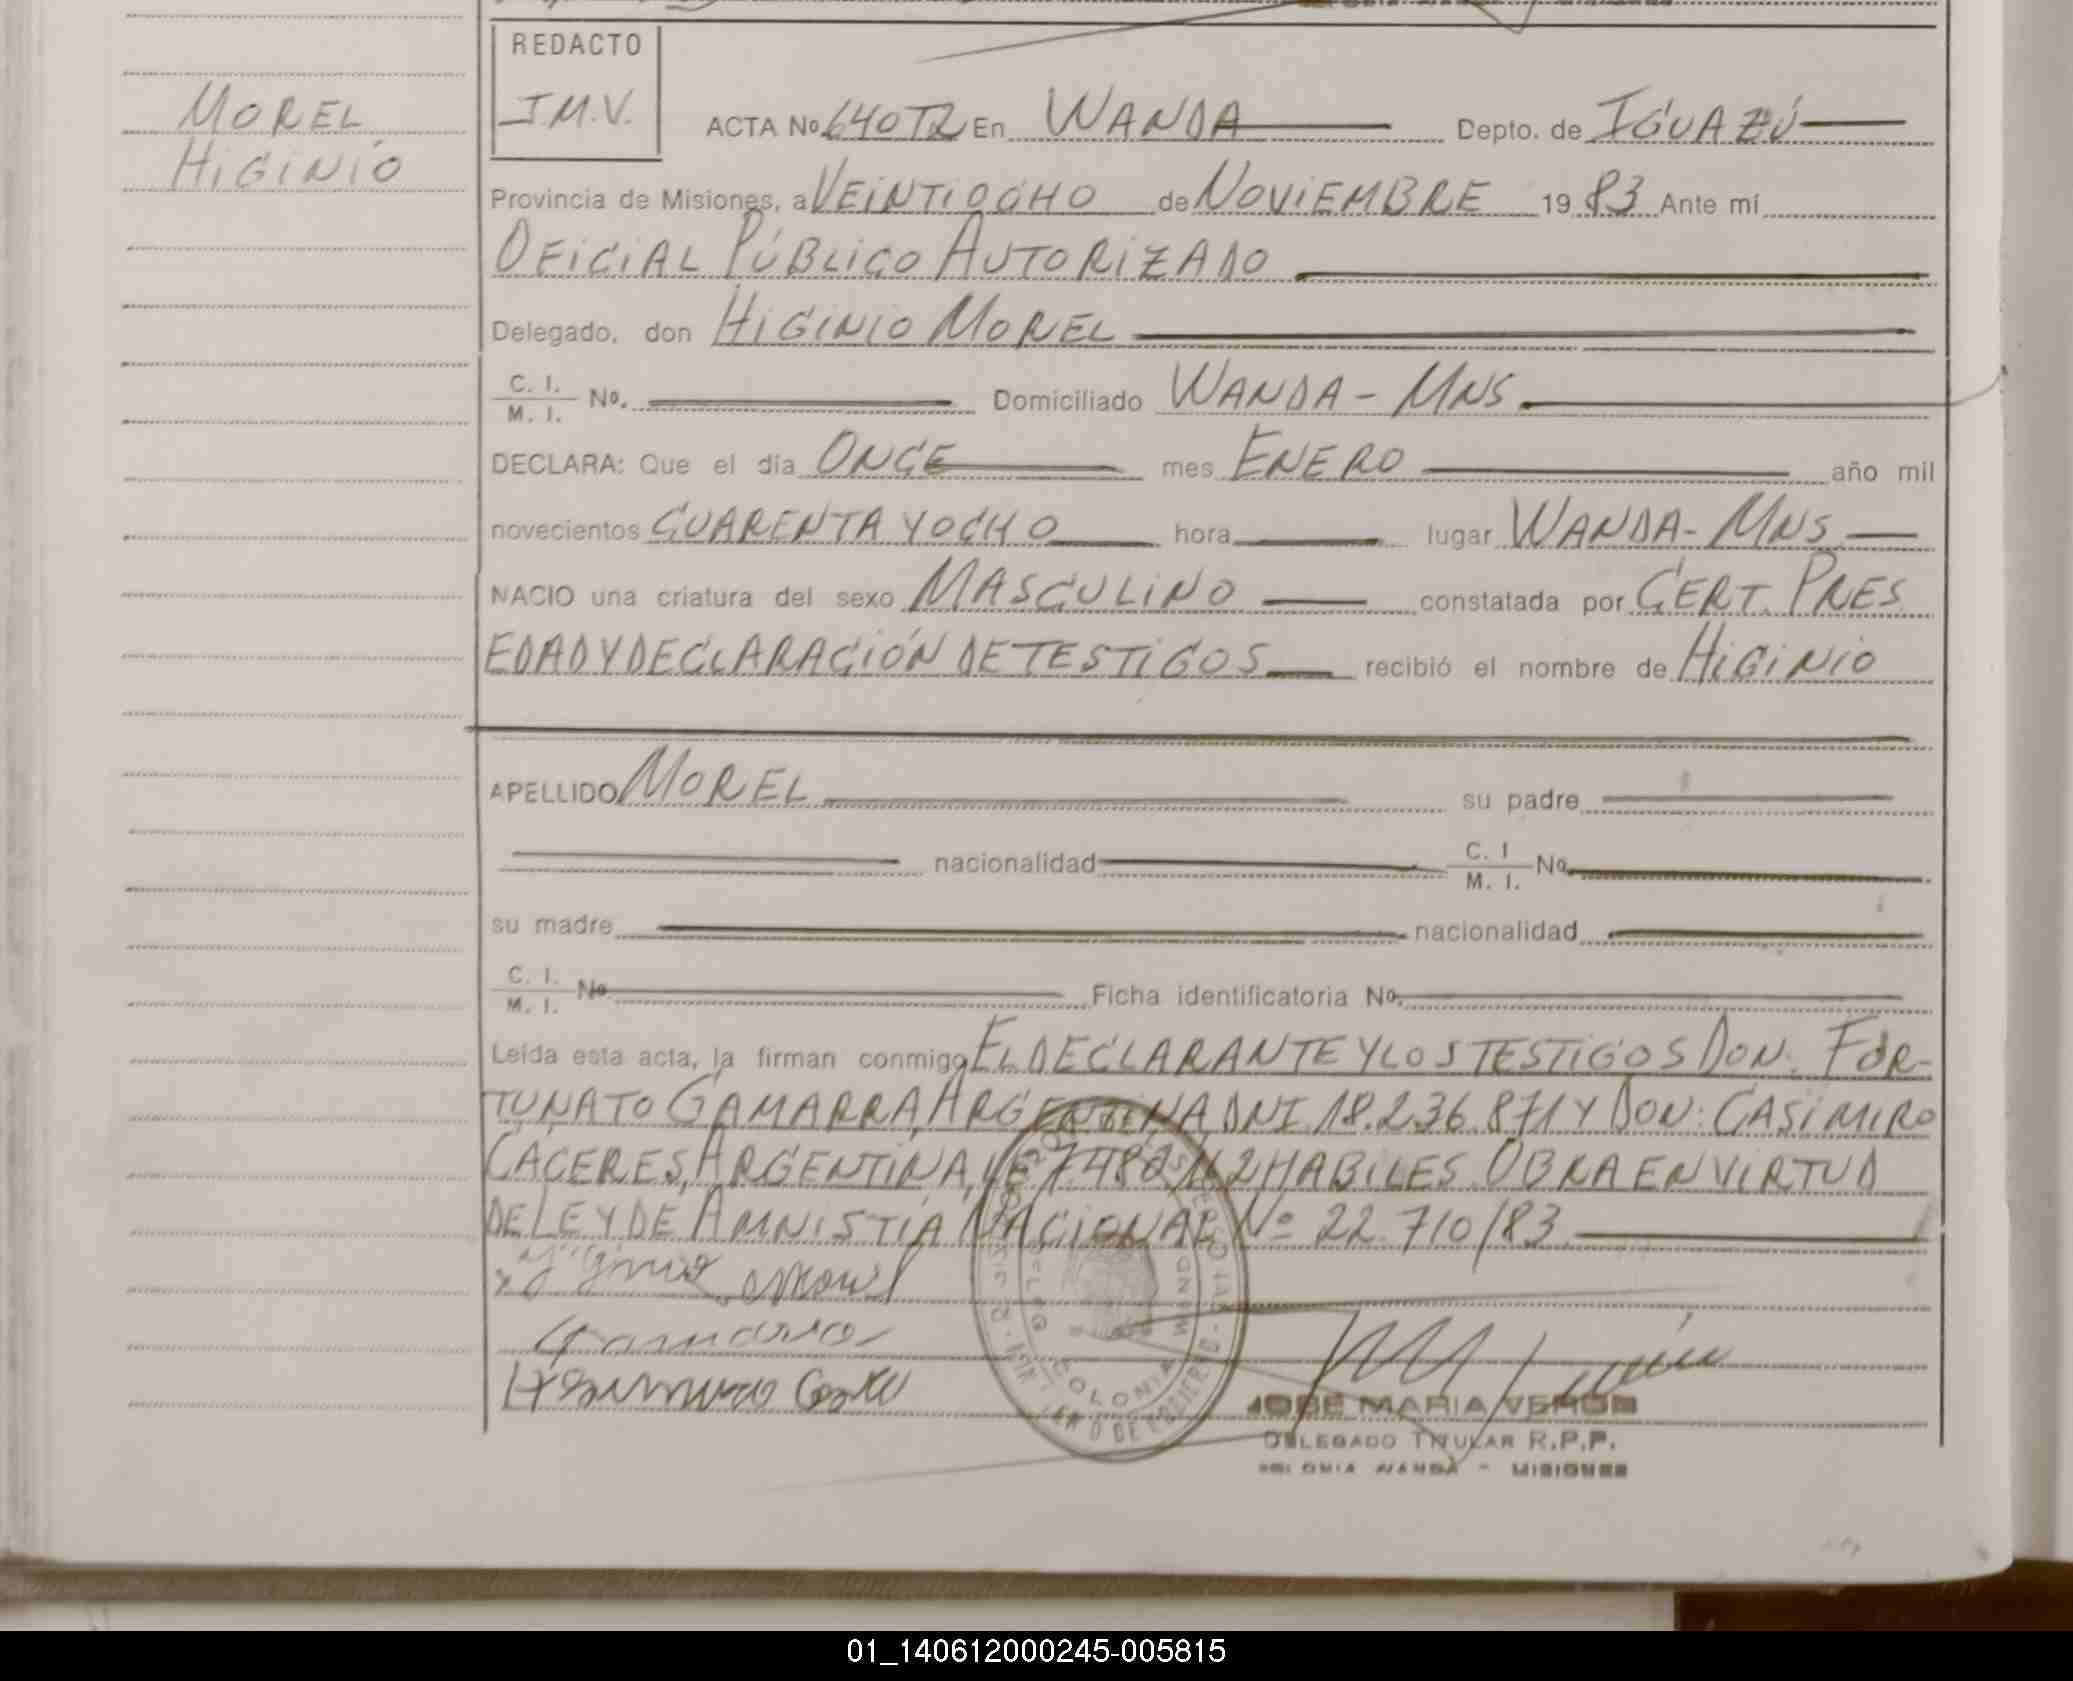 MOREL
HIGINIO
REDACTO
J.M.V.
ACTA No 640T2 En WANDA Depto. de IGUAZÚ
Provincia de Misiones, a VEINTIOCHO de NOVIEMBRE 19 83 Ante mí
OFICIAL PÚBLICO AUTORIZADO
Delegado, don HIGINIO MOREL
C. I. / M. I. No. Domiciliado WANDA - MNS
DECLARA: Que el día ONCE mes ENERO año mil
novecientos CUARENTA Y OCHO hora lugar WANDA - MNS
NACIO una criatura del sexo MASCULINO constatada por CERT. PRES
EDAD Y DECLARACIÓN DE TESTIGOS recibió el nombre de HIGINIO
APELLIDO MOREL su padre
nacionalidad C. I / M. I. No
su madre nacionalidad
C. I. / M. I. No Ficha identificatoria No.
Leída esta acta, la firman conmigo EL DECLARANTE Y LOS TESTIGOS DON. FOR-
TUNATO GAMARRA, ARGENTINA, DNI 18.236.871 Y DON: CASIMIRO
CACERES, ARGENTINA, HABILES. OBRA EN VIRTUD
DE LEY DE AMNISTIA NACIONAL Nº 22.710/83
COLONIA WANDA
JOSE MARIA VERON
DELEGADO TITULAR R.P.P.
COLONIA WANDA - MISIONES
01_140612000245-005815